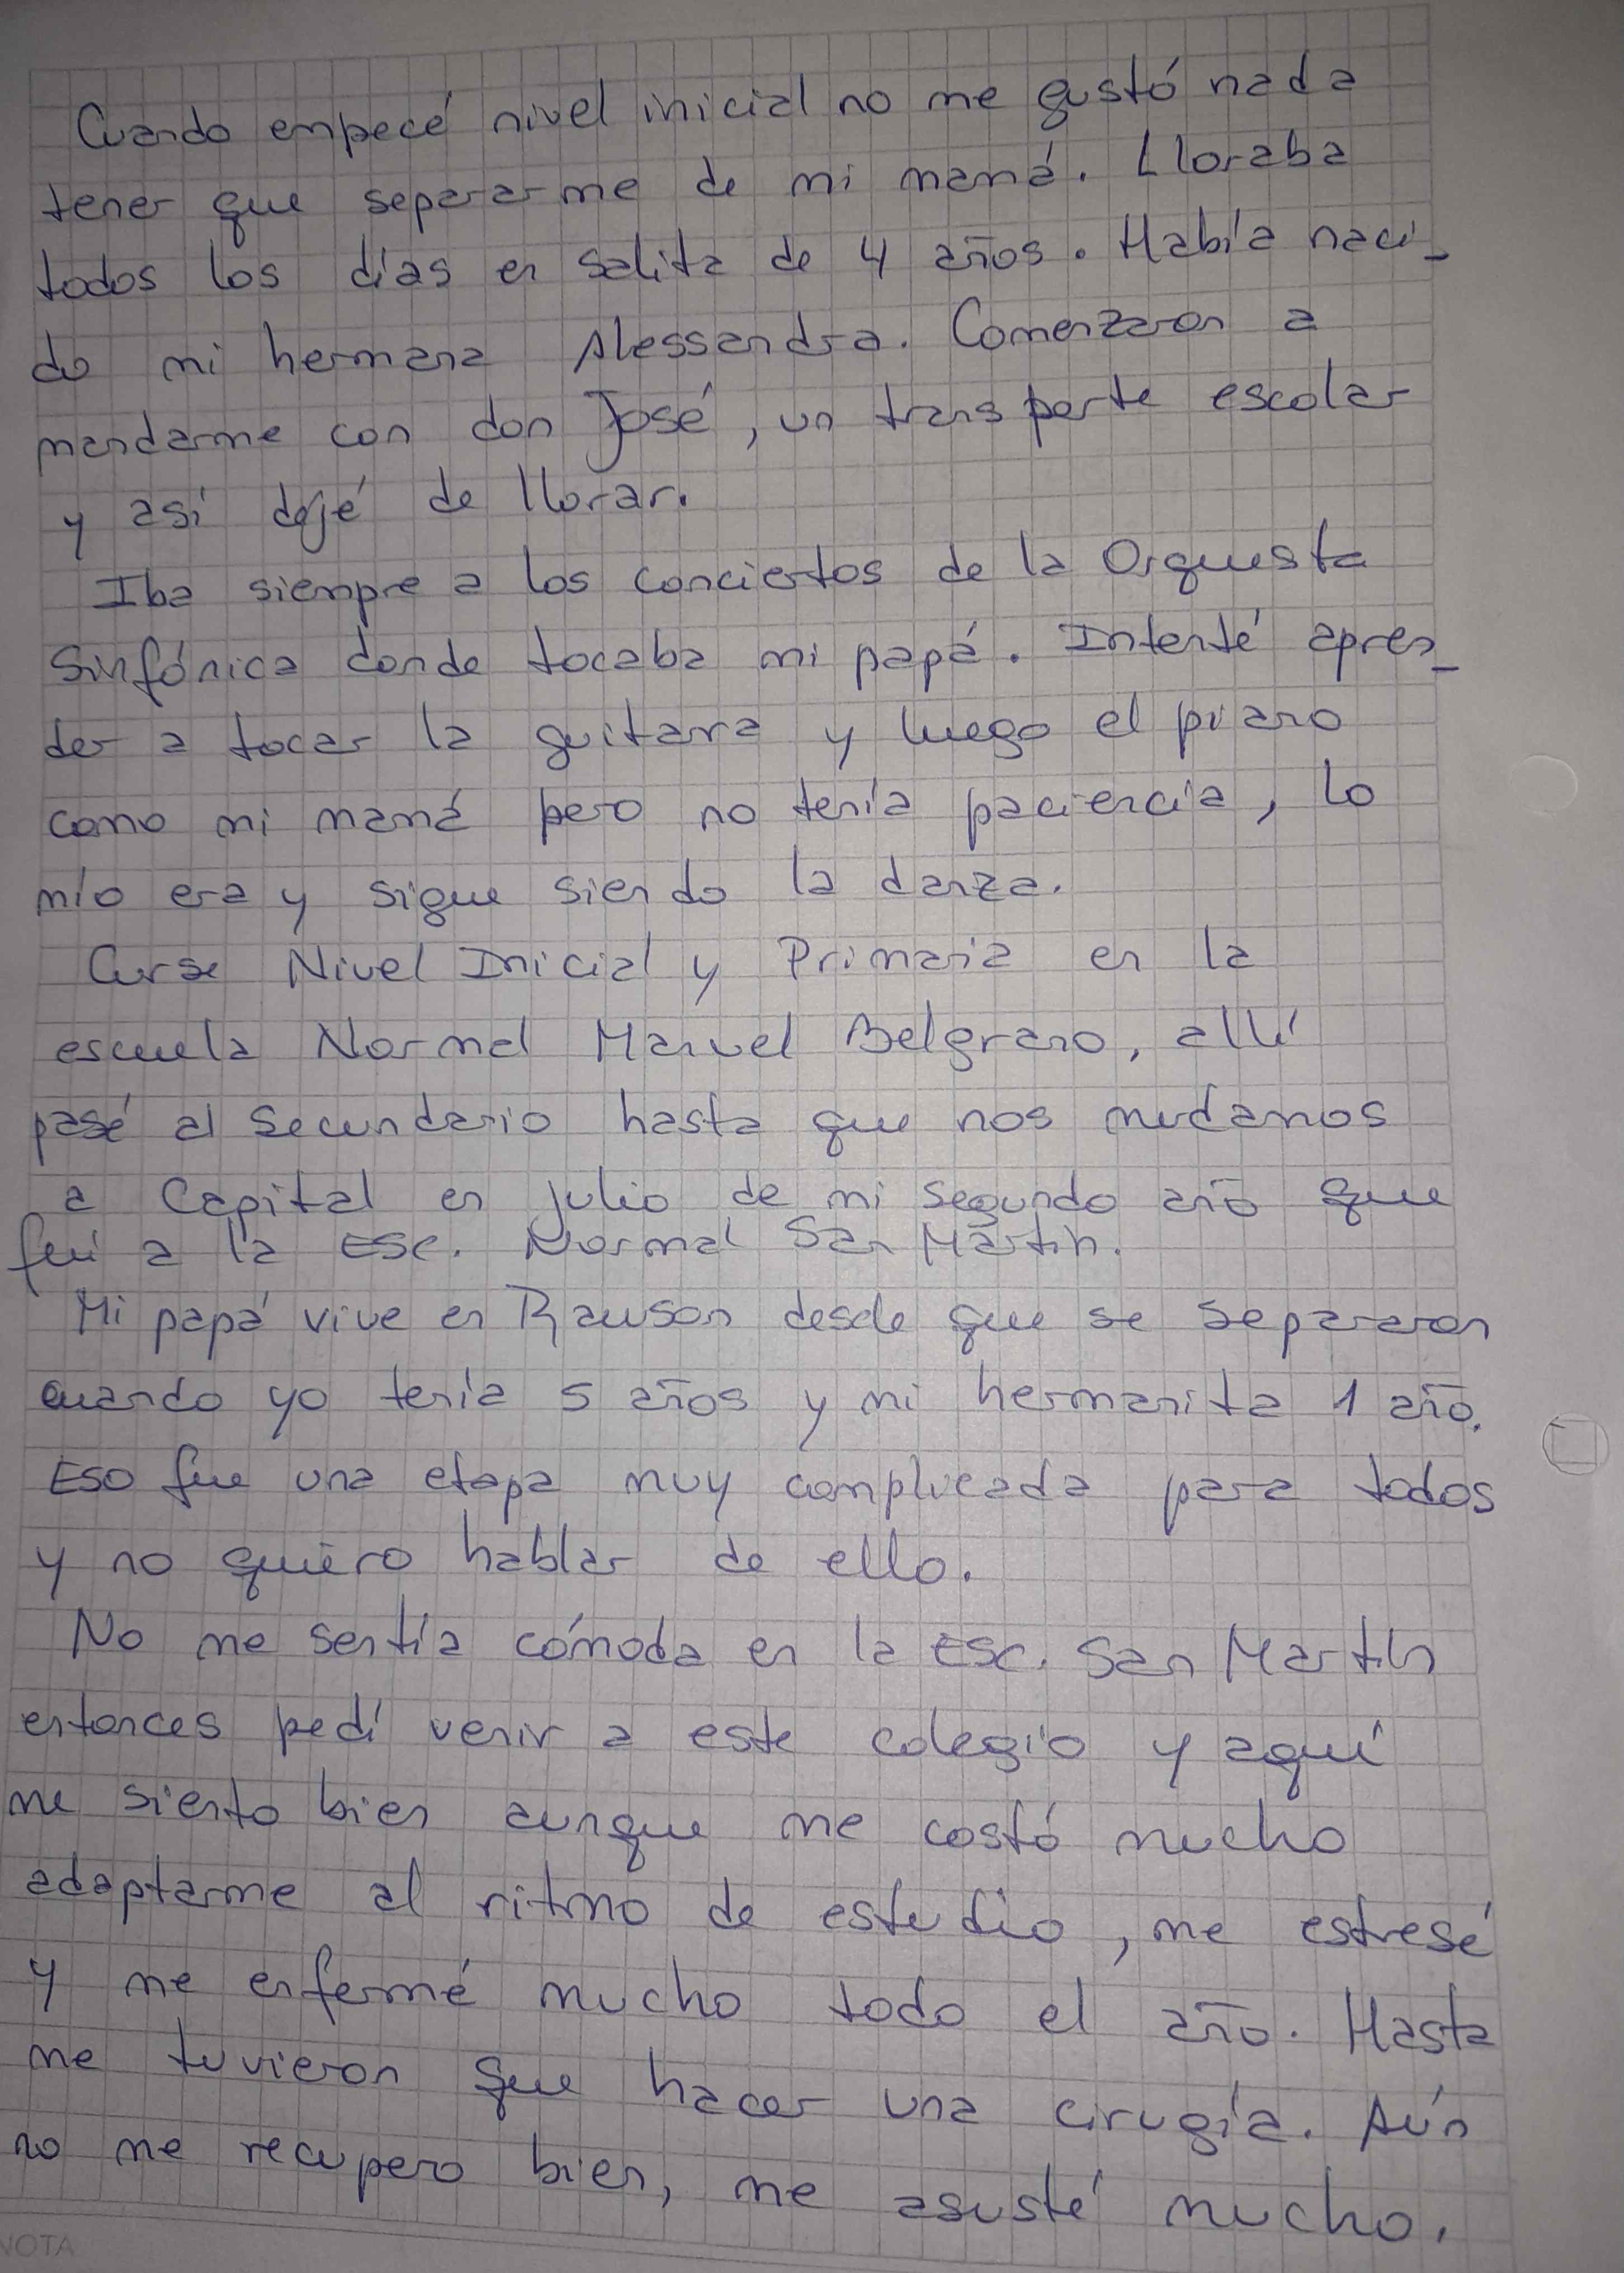 Cuando empecé nivel inicial no me gustó nada
tener que separarme de mi mamá. Lloraba
todos los días en salita de 4 años. Había naci_
do mi hermana Alessandra. Comenzaron a
mandarme con don José, un transporte escolar
y así dejé de llorar.
Iba siempre a los conciertos de la Orquesta
Sinfónica donde tocaba mi papá. Intenté apren_
der a tocar la guitarra y luego el piano
como mi mamá pero no tenía paciencia, lo
mío era y sigue siendo la danza.
Curse Nivel Inicial y Primaria en la
escuela Normal Manuel Belgrano, allí
pasé al secundario hasta que nos mudamos
a Capital en julio de mi segundo año que
fui a la Esc. Normal San Martín.
Mi papá vive en Rawson desde que se separaron
cuando yo tenía 5 años y mi hermanita 1 año.
Eso fue una etapa muy complicada para todos
y no quiero hablar de ello.
No me sentía cómoda en la Esc. San Martín
entonces pedí venir a este colegio y aquí
me siento bien aunque me costó mucho
adaptarme al ritmo de estudio, me estresé
y me enfermé mucho todo el año. Hasta
me tuvieron que hacer una cirugía. Aún
no me recupero bien, me asusté mucho.
NOTA